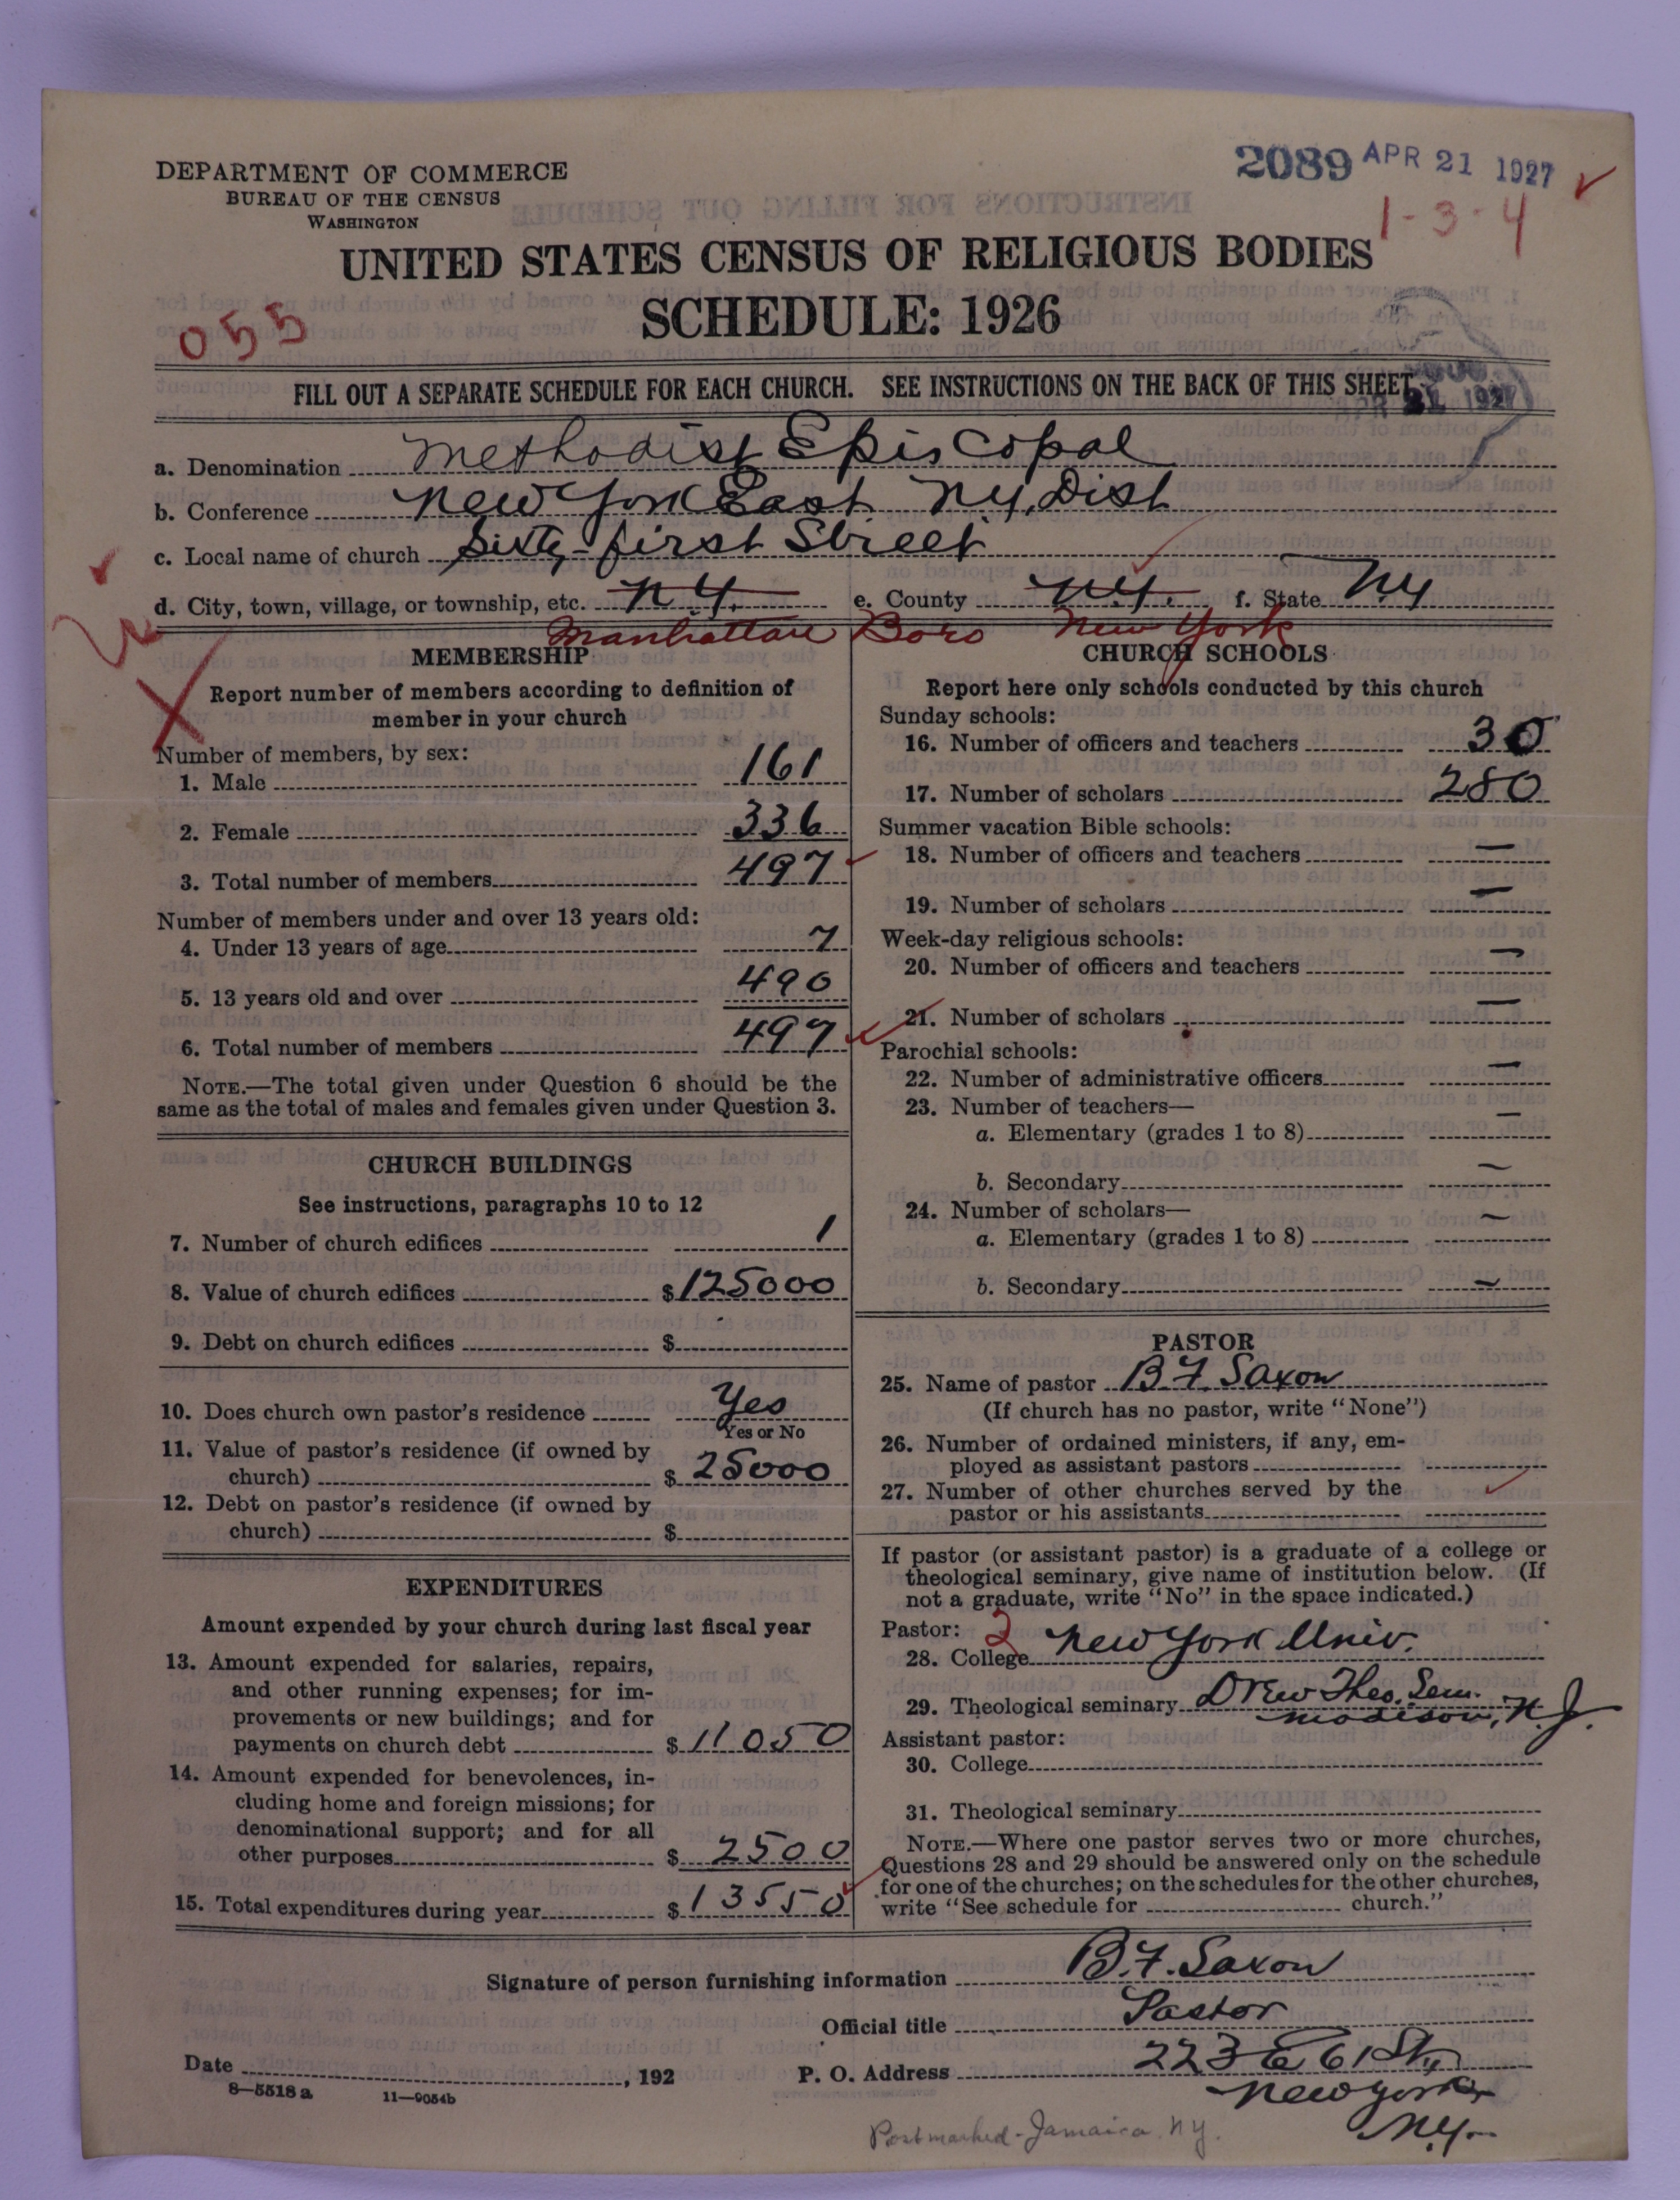 DEPARTMENT OF COMMERCE
BUREAU OF THE CENSUS
WASHINGTON
2089 APR 21 1927
1-3-4
UNITED STATES CENSUS OF RELIGIOUS BODIES
SCHEDULE: 1926
055
FILL OUT A SEPARATE SCHEDULE FOR EACH CHURCH. SEE INSTRUCTIONS ON THE BACK OF THIS SHEET
APR 21 1927
a. Denomination Methodist Episcopal
b. Conference New York East N.Y. Dist
c. Local name of church Sixty-first Street
d. City, town, village, or township, etc. N.Y. e. County N.Y. f. State N.Y
Manhattan Boro New York
MEMBERSHIP
Report number of members according to definition of
member in your church
Number of members, by sex:
1. Male 161
2. Female 336
3. Total number of members 497
Number of members under and over 13 years old:
4. Under 13 years of age 7
5. 13 years old and over 490
6. Total number of members 497
NOTE.—The total given under Question 6 should be the
same as the total of males and females given under Question 3.
CHURCH BUILDINGS
See instructions, paragraphs 10 to 12
7. Number of church edifices 1
8. Value of church edifices $125000
9. Debt on church edifices $
10. Does church own pastor's residence Yes
Yes or No
11. Value of pastor's residence (if owned by
church) $25000
12. Debt on pastor's residence (if owned by
church) $
EXPENDITURES
Amount expended by your church during last fiscal year
13. Amount expended for salaries, repairs,
and other running expenses; for im-
provements or new buildings; and for
payments on church debt $11050
14. Amount expended for benevolences, in-
cluding home and foreign missions; for
denominational support; and for all
other purposes $2500
15. Total expenditures during year $13550
CHURCH SCHOOLS
Report here only schools conducted by this church
Sunday schools:
16. Number of officers and teachers 30
17. Number of scholars 280
Summer vacation Bible schools:
18. Number of officers and teachers —
19. Number of scholars —
Week-day religious schools:
20. Number of officers and teachers —
21. Number of scholars —
Parochial schools:
22. Number of administrative officers —
23. Number of teachers—
a. Elementary (grades 1 to 8) —
b. Secondary —
24. Number of scholars—
a. Elementary (grades 1 to 8) —
b. Secondary —
PASTOR
25. Name of pastor B.F. Saxon
(If church has no pastor, write "None")
26. Number of ordained ministers, if any, em-
ployed as assistant pastors
27. Number of other churches served by the
pastor or his assistants
If pastor (or assistant pastor) is a graduate of a college or
theological seminary, give name of institution below. (If
not a graduate, write "No" in the space indicated.)
Pastor: 2
28. College New York Univ.
29. Theological seminary Drew Theo. Sem.
Madison, N.J.
Assistant pastor:
30. College
31. Theological seminary
NOTE.—Where one pastor serves two or more churches,
Questions 28 and 29 should be answered only on the schedule
for one of the churches; on the schedules for the other churches,
write "See schedule for church."
Signature of person furnishing information B.F. Saxon
Official title Pastor
Date , 192 P. O. Address 223 E 61 St,
New York
N.Y.
8—5518 a 11—9054b
Postmarked - Jamaica, N.Y.